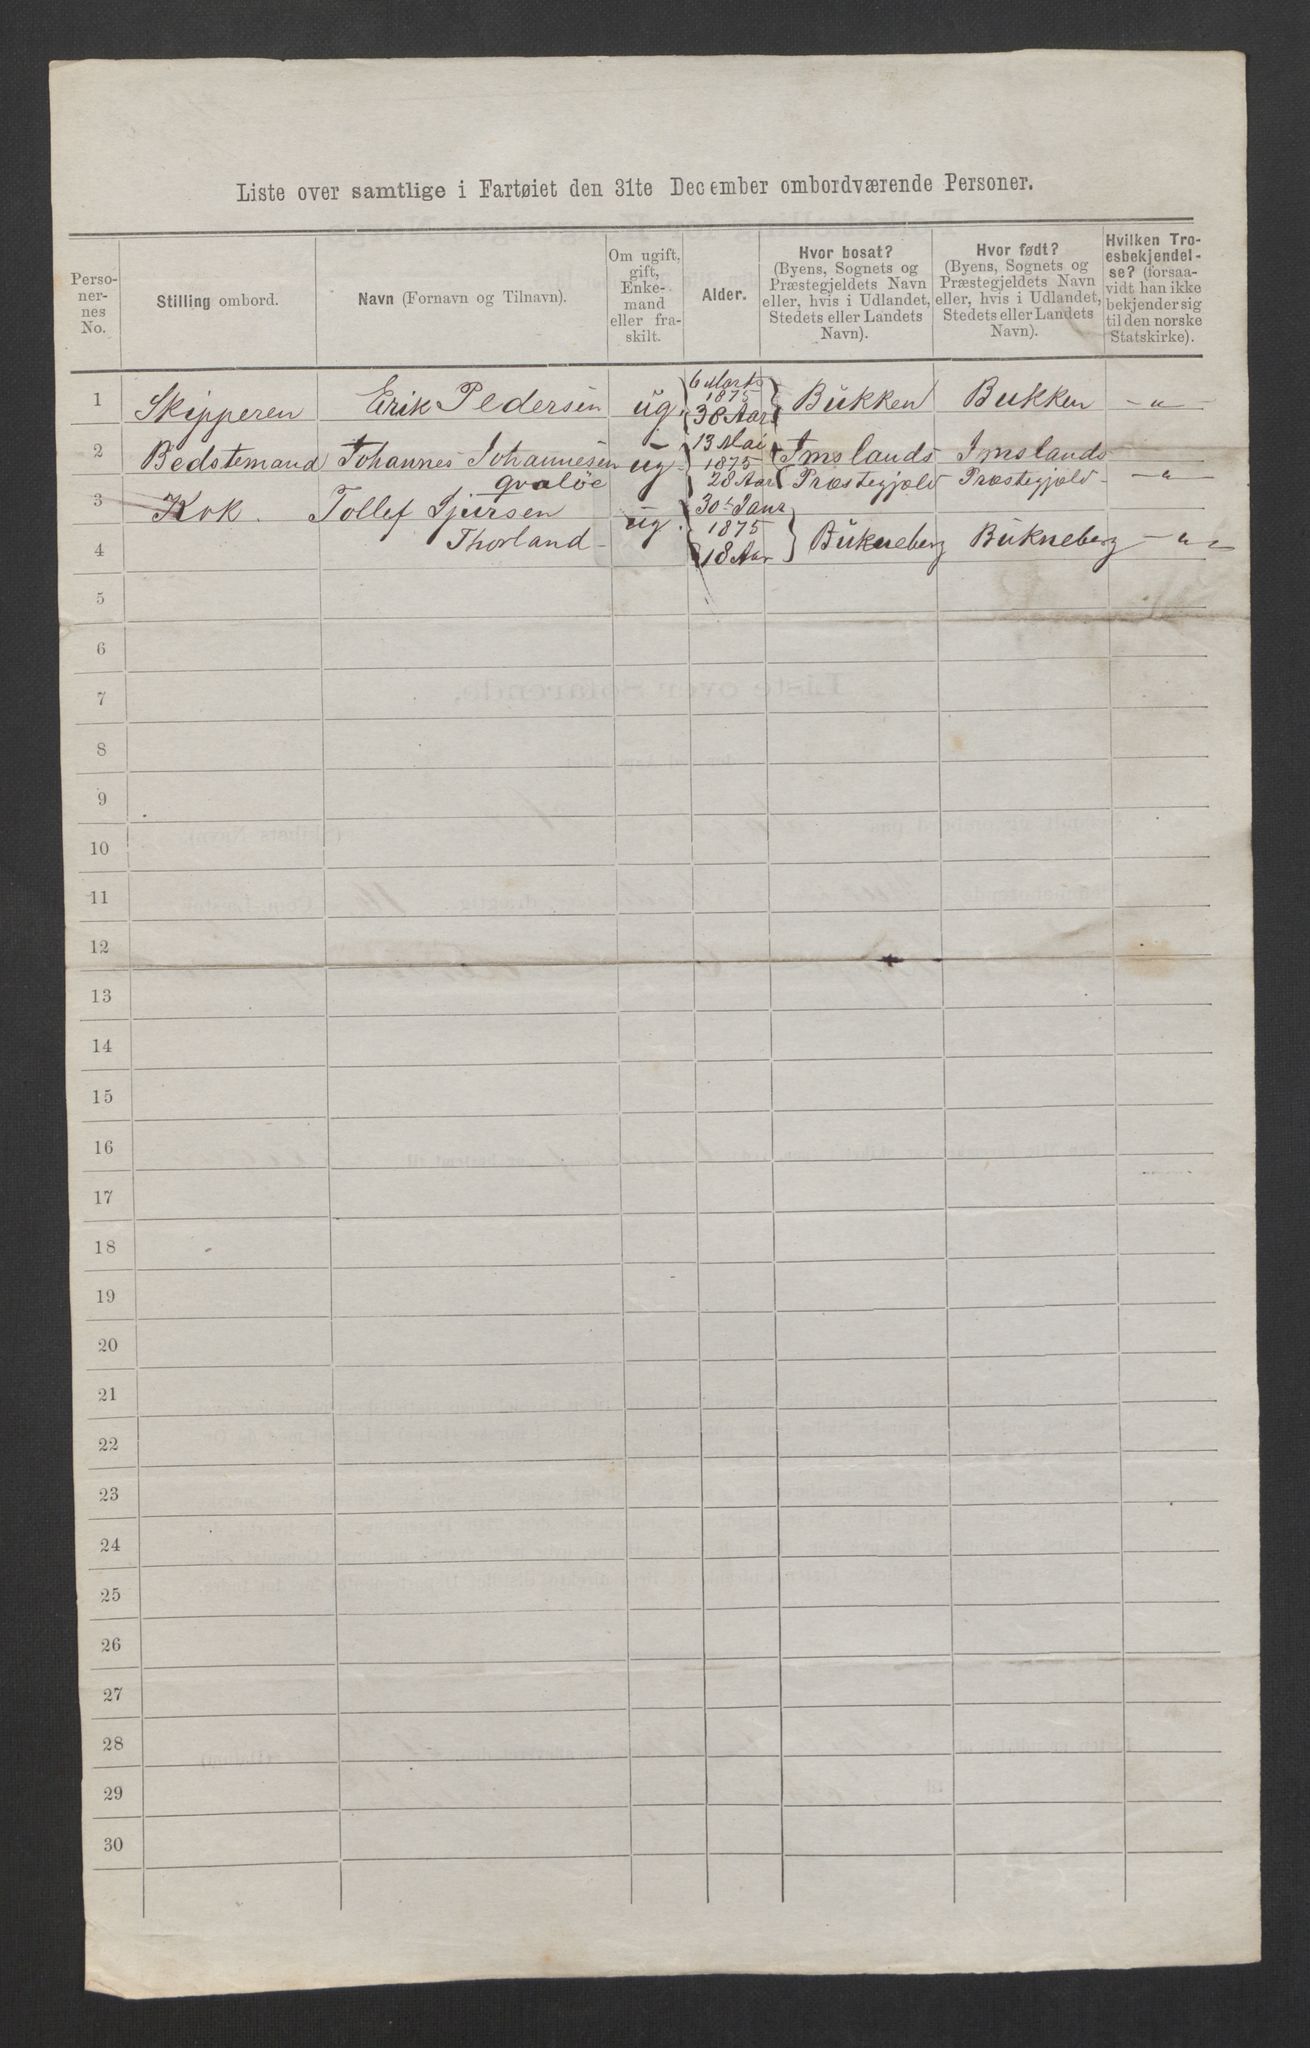 Liste over samtlige i Fartøiet den 31te December ombordværende Personer.
Perso-
ner-
nes
No.
Stilling ombord.
Navn (Fornavn og Tilnavn).
Om ugift,
gift,
Enke-
mand
eller fra-
skilt.
Alder.
Hvor bosat?
(Byens, Sognets og
Præstegjeldets Navn
eller, hvis i Udlandet,
Stedets eller Landets
Navn).
Hvor født?
(Byens, Sognets og
Præstegjeldets Navn
eller, hvis i Udlandet,
Stedets eller Landets
Navn).
Hvilken Tro-
esbekjendel-
se? (forsaa-
vidt han ikke
bekjender sig
til den norske
Statskirke).
6 Marts
1875
1 Skipperen Erik Pedersen ug. 38 Aar Bukken Bukken - " -
13 Mai
2 Bedstemand Johannes Johannesen ug 1875 Imslands Imslands
qvaløe 28 Aar Præstegjæld Præstegjæld - " -
3 Kok. Tollef Sjursen ug. 30te Janr
1875
4 Thorland 18 Aar Bukneberg Bukneberg - " -
5
6
7
8
9
10
11
12
13
14
15
16
17
18
19
20
21
22
23
24
25
26
27
28
29
30